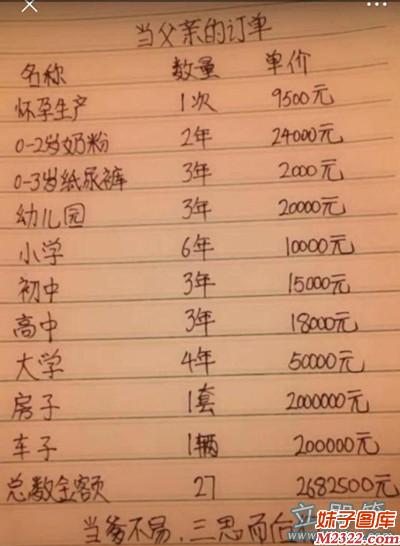 当父亲的订单
名称 数量 单价
怀孕生产 1次 9500元
0-2岁奶粉 2年 24000元
0-3岁纸尿裤 3年 2000元
幼儿园 3年 20000元
小学 6年 10000元
初中 3年 15000元
高中 3年 18000元
大学 4年 50000元
房子 1套 2000000元
车子 1辆 200000元
总数金额 27 2682500元
当爹不易,三思而
妹子图库
M2322.com